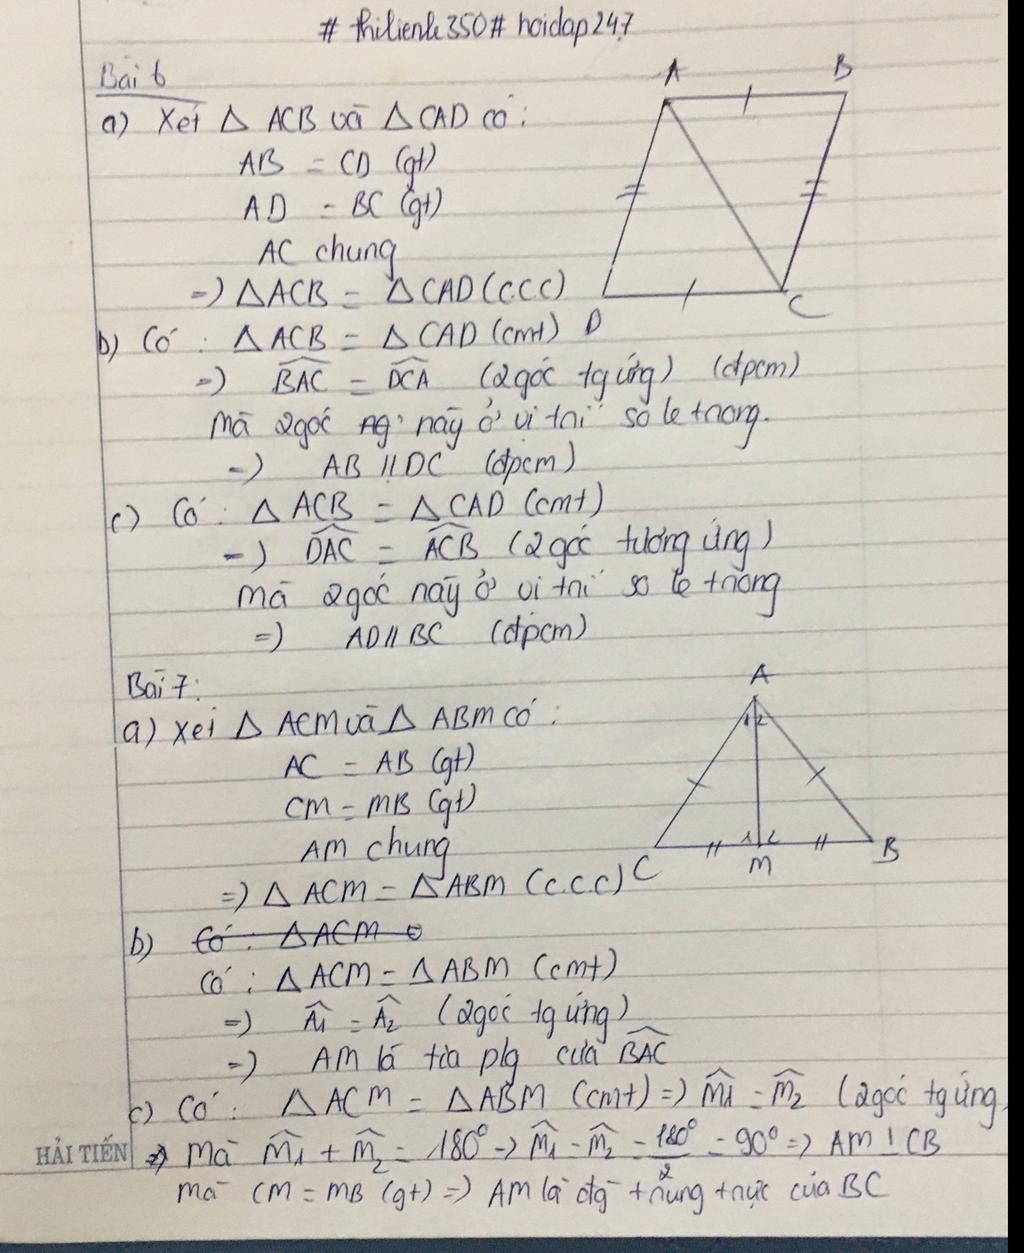 # thilienh350# hoidap247
Bài 6
A B
a) Xét Δ ACB và Δ CAD có:
AB = CD (gt)
AD = BC (gt)
AC chung
=) ΔACB = ΔCAD (ccc)
D C
b) Có: Δ ACB = Δ CAD (cmt)
=) BAC = DCA (2góc tg ứng) (đpcm)
Mà 2góc này ở vị trí so le trong.
=) AB // DC (đpcm)
c) Có: Δ ACB = Δ CAD (cmt)
=) DAC = ACB (2góc tương ứng)
Mà 2góc này ở vị trí so le trong
=) AD // BC (đpcm)
Bài 7:
A
1 2
a) Xét Δ ACM và Δ ABM có:
AC = AB (gt)
CM = MB (gt)
AM chung
1 2
C M B
=) Δ ACM = ΔABM (c.c.c)
b) Có: Δ ACM
Có: Δ ACM = Δ ABM (cmt)
=) Â1 = Â2 (2góc tg ứng)
=) AM là tia p/g của BAC
c) Có: Δ ACM = Δ ABM (cmt) =) M1 = M2 (2góc tg ứng)
HẢI TIẾN
Mà M1 + M2 = 180° => M1 = M2 = 180°/2 = 90° => AM ⊥ CB
mà CM = MB (gt) =) AM là đg trung trực của BC